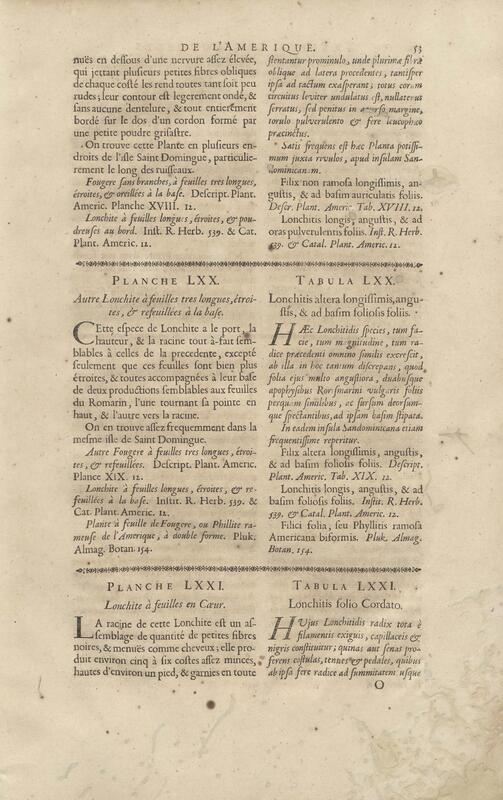 DE L'AMERIQUE. 53
nuës en dessous d'une nervure assez élevée,
qui jettant plusieurs petites fibres obliques
de chaque costé les rend toutes tant soit peu
rudes; leur contour est legerement ondé, &
sans aucune dentelure, & tout entierement
bordé sur le dos d'un cordon formé par
une petite poudre grisastre.
On trouve cette Plante en plusieurs en-
droits de l'isle Saint Domingue, particulie-
rement le long des ruisseaux.
Fougere sans branches, à feuilles tres longues,
étroites, & oreillées à la base. Descript. Plant.
Americ. Planche XVIII. 12.
Lonchite à feuilles longues, étroites, & pou-
dreuses au bord. Inst. R. Herb. 539. & Cat.
Plant. Americ. 12.
stentantur prominulo, unde plurimæ fibræ
oblique ad latera procedentes, tantisper
ipsa ad tactum exasperant; totus eorum
circuitus leviter undulatus est, nullatenus
serratus, sed penitus in aversa margine,
torulo pulverulento & fere leucophæo
præcinctus.
Satis frequens est hæc Planta potissi-
mum juxta rivulos, apud insulam San-
dominicanam.
Filix non ramosa longissimis, an-
gustis, & ad basim auriculatis foliis.
Descr. Plant. Americ. Tab. XVIII. 12.
Lonchitis longis, angustis, & ad
oras pulverulentis foliis. Inst. R. Herb.
539. & Catal. Plant. Americ. 12.
PLANCHE LXX.
Autre Lonchite à feuilles tres longues, étroi-
tes, & refeuillées à la base.
Cette espece de Lonchite a le port, la
hauteur, & la racine tout-à-fait sem-
blables à celles de la precedente, excepté
seulement que ces feuilles sont bien plus
étroites, & toutes accompagnées à leur base
de deux productions semblables aux feuilles
du Romarin, l'une tournant sa pointe en
haut, & l'autre vers la racine.
On en trouve assez frequemment dans la
mesme isle de Saint Domingue.
Autre Fougere à feuilles tres longues, étroi-
tes, & refeuillées. Descript. Plant. Americ.
Plance XIX. 12.
Lonchite à feuilles longues, étroites, & re-
feuillées à la base. Instit. R. Herb. 539. &
Cat. Plant. Americ. 12.
Plante à feuille de Fougere, ou Phillite ra-
meuse de l'Amerique, à double forme. Pluk.
Almag. Botan. 154.
TABULA LXX.
Lonchitis altera longissimis, angu-
stis, & ad basim foliosis foliis.
HÆc Lonchitidis species, tum fa-
cie, tum magnitudine, tum ra-
dice præcedenti omnino similis excrescit,
ab illa in hoc tantum discrepans, quod
folia ejus multo angustiora, duabusque
apophysibus Rorismarini vulgaris foliis
perquam similibus, ac sursum deorsum-
que spectantibus, ad ipsam basim stipata.
In eadem insula Sandominicana etiam
frequentissime reperitur.
Filix altera longissimis, angustis,
& ad basim foliosis foliis. Descript.
Plant. Americ. Tab. XIX. 12.
Lonchitis longis, angustis, & ad
basim foliosis foliis. Instit. R. Herb.
539. & Catal. Plant. Americ. 12.
Filici folia, seu Phyllitis ramosa
Americana biformis. Pluk. Almag.
Botan. 154.
PLANCHE LXXI.
Lonchite à feuilles en Cœur.
LA racine de cette Lonchite est un as-
semblage de quantité de petites fibres
noires, & menuës comme cheveux; elle pro-
duit environ cinq à six costes assez minces,
hautes d'environ un pied, & garnies en toute
TABULA LXXI.
Lonchitis folio Cordato.
HUjus Lonchitidis radix tota è
filamentis exiguis, capillaceis &
nigris constituitur; quinas aut senas pro-
ferens costulas, tenues & pedales, quibus
ab ipsa fere radice ad summitatem usque
O